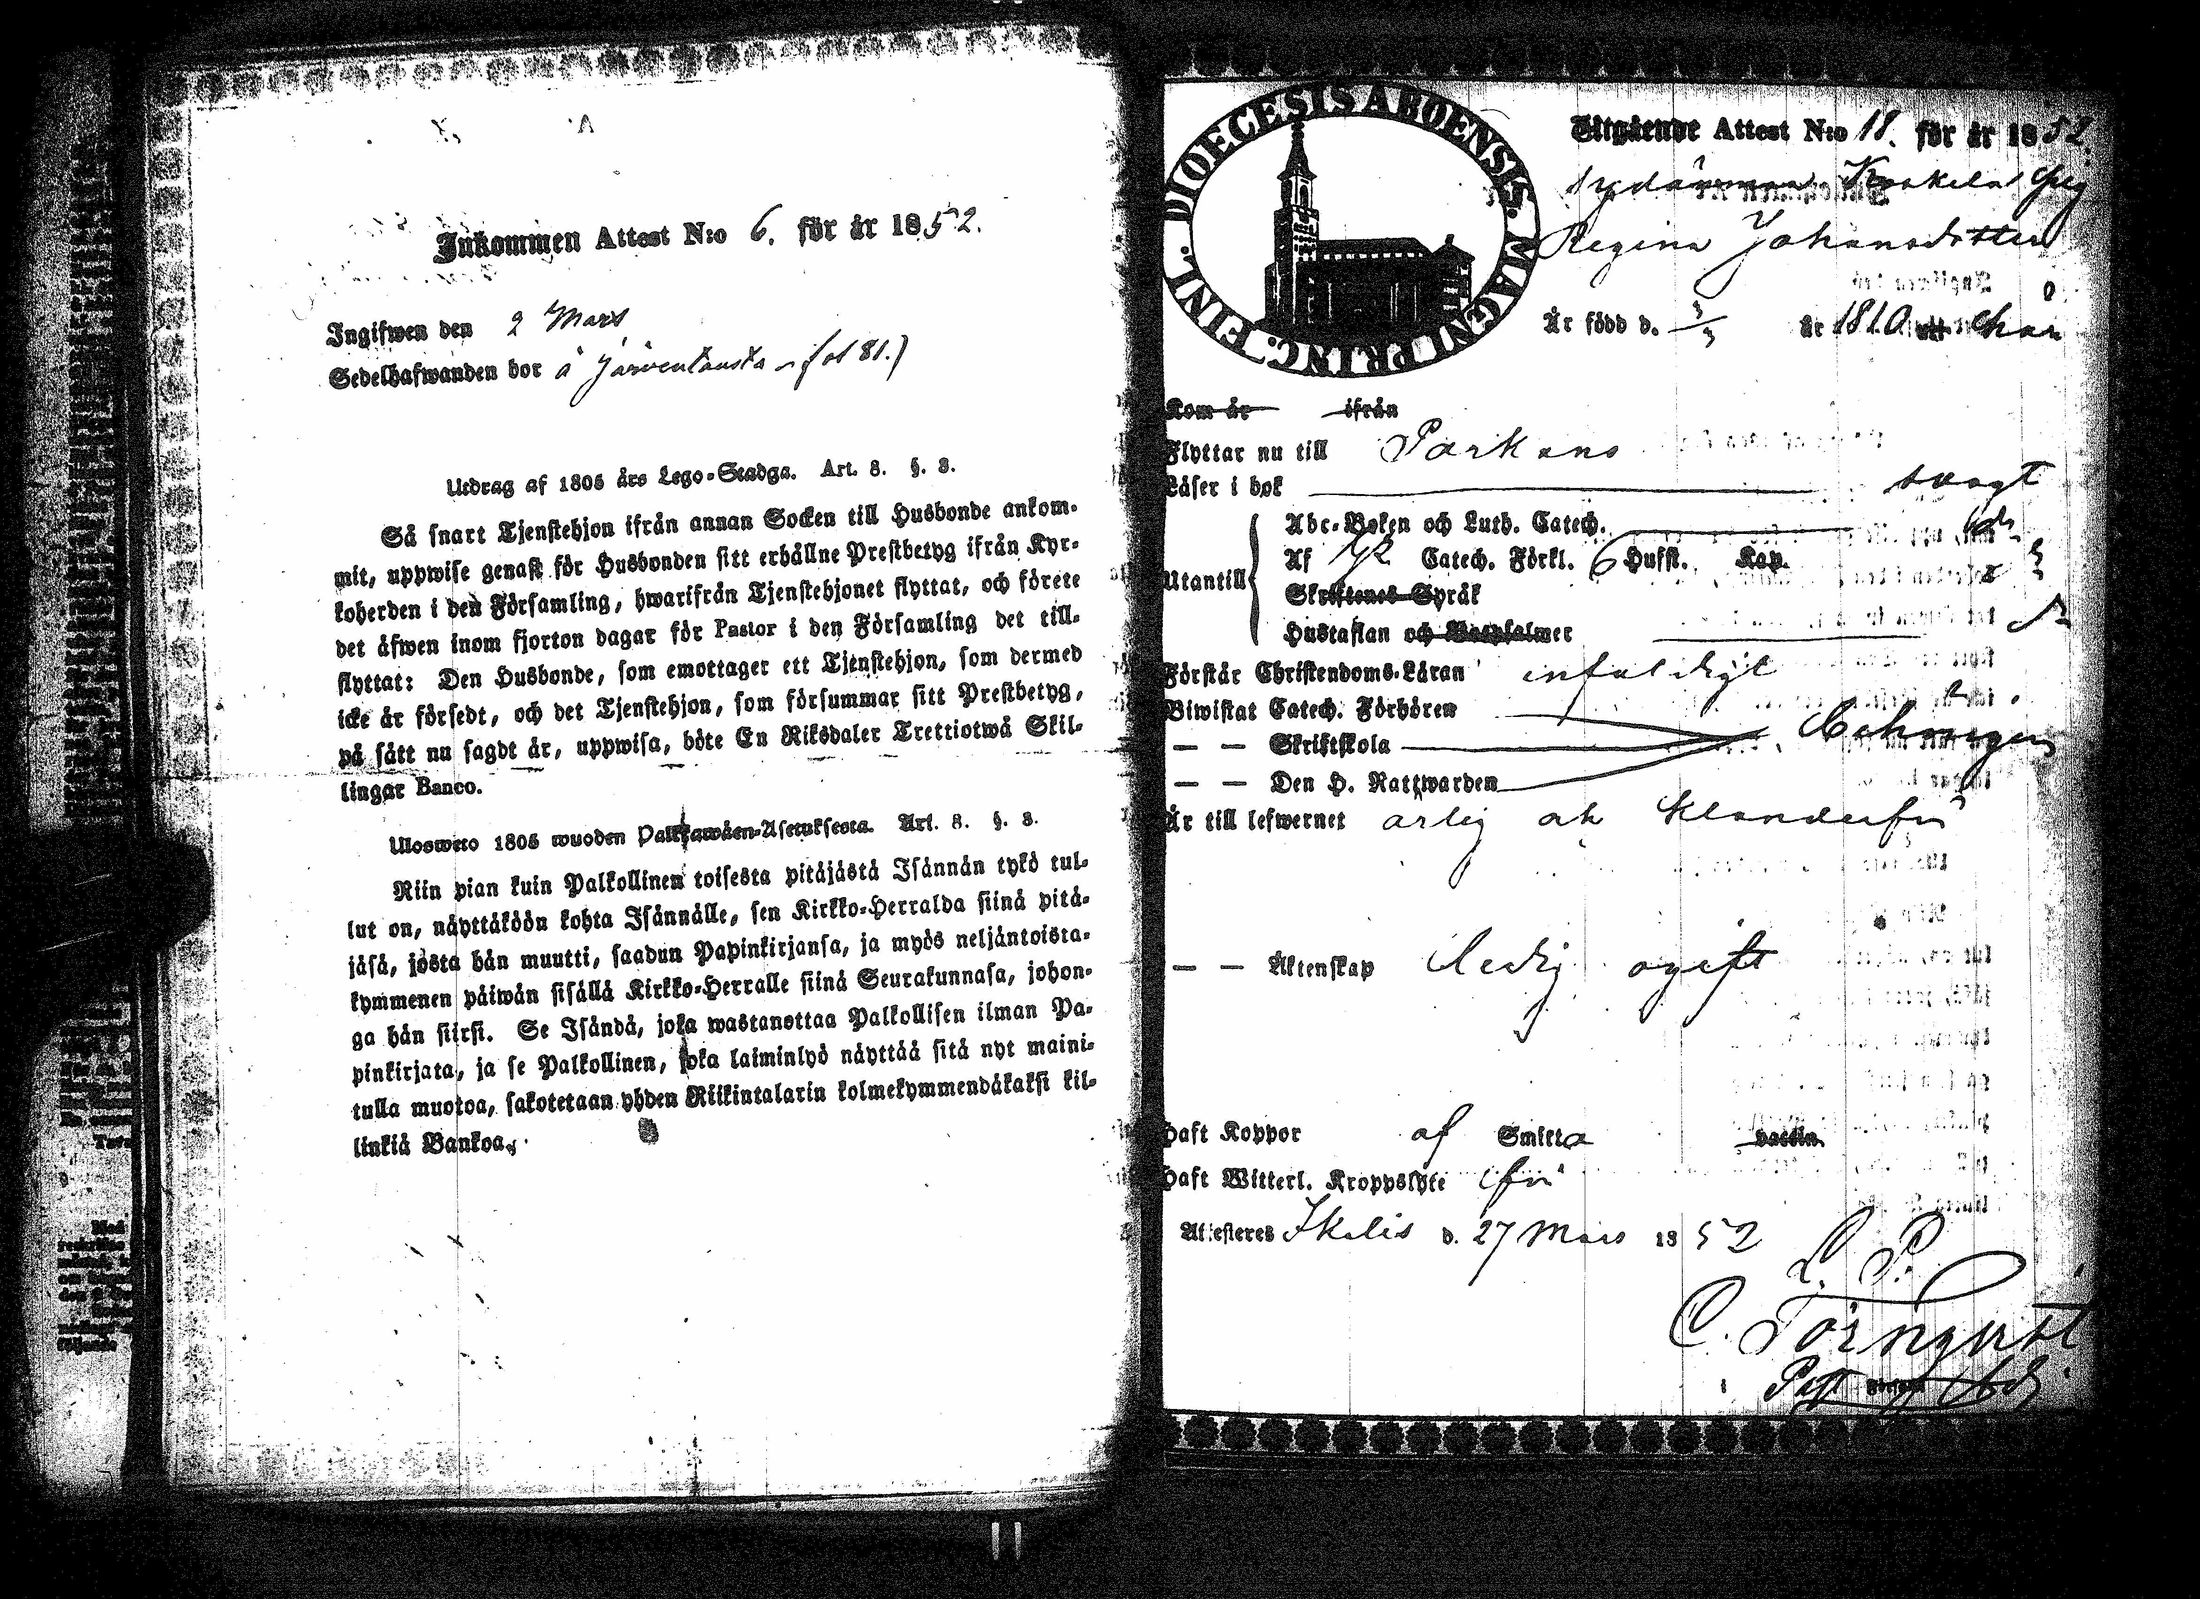 Inkommen Attest N:o 6. för år 1852.
Ingifwen den 2 Mars
Sedelhafwanden bor å Järventausta fol 81.)
Utdrag af 1805 års Lego-Stadga. Art. 8. §. 3.
Så snart Tjenstehjon ifrån annan Socken till Husbonde ankom-
mit, uppwise genast för Husbonden sitt erhållne Prestbetyg ifrån Kyr-
koherden i den Församling, hwarifrån Tjenstehjonet flyttat, och förete
det äfwen inom fjorton dagar för Pastor i den Församling det till-
flyttat: Den Husbonde, som emottager ett Tjenstehjon, som dermed
icke är försedt, och det Tjenstehjon, som försummar sitt Prestbetyg,
på sätt nu sagdt är, uppwisa, böte En Riksdaler Trettiotwå Skil-
lingar Banco.
Ulosweto 1805 wuoden Palkkawäen-Asetuksesta. Art. 8. §. 3.
Niin pian kuin Palkollinen toisesta pitäjästä Isännän tykö tul-
lut on, näyttäköön kohta Isännälle, sen Kirkko-Herralda siinä pitä-
jäsä, josta hän muutti, saadun Papinkirjansa, ja myös neljäntoista-
kymmenen päiwän sisällä Kirkko-Herralle siinä Seurakunnasa, johon-
ga hän siirsi. Se Isändä, joka wastanottaa Palkollisen ilman Pa-
pinkirjata, ja se Palkollinen, joka laiminlyö näyttää sitä nyt maini-
tulla muotoa, sakotetaan yhden Riikintalarin kolmekymmendäkaksi kil-
linkiä Bankoa.
DIOECESIS ABOENSIS. MAGNI PRINC. FINL.
Utgående Attest N:o 18. för år 1852.
Regina Johansdotter
Är född d. 3/3 år 1810 och har
Kom år ifrån
Flyttar nu till Parkano
Läser i bok svagt
Utantill
Abc-Boken och Luth. Catech.
Af 1/2 Catech. Förkl. 6 Hufst. Kap.
Skriftenes Språk
Hustaflan och Botpsalmer
Förstår Christendoms-Läran enfaldigt
Biwistat Catech. Förhören
— — Skriftskola behörigen
— — Den H. Nattwarden
Är till lefwernet ärlig och klanderfri
— — Äktenskap ledig ogift
Haft Koppor af Smitta
Haft Witterl. Kroppslyte fri
Attesteres Ikalis d. 27 Mars 1852
L. P.
C. Törnqvist
Past. Adj.